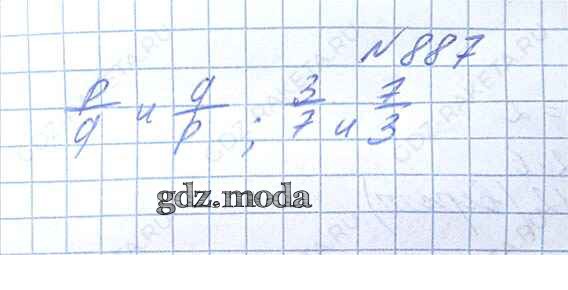 №887
p/q и q/p ; 3/7 и 7/3
gdz.moda